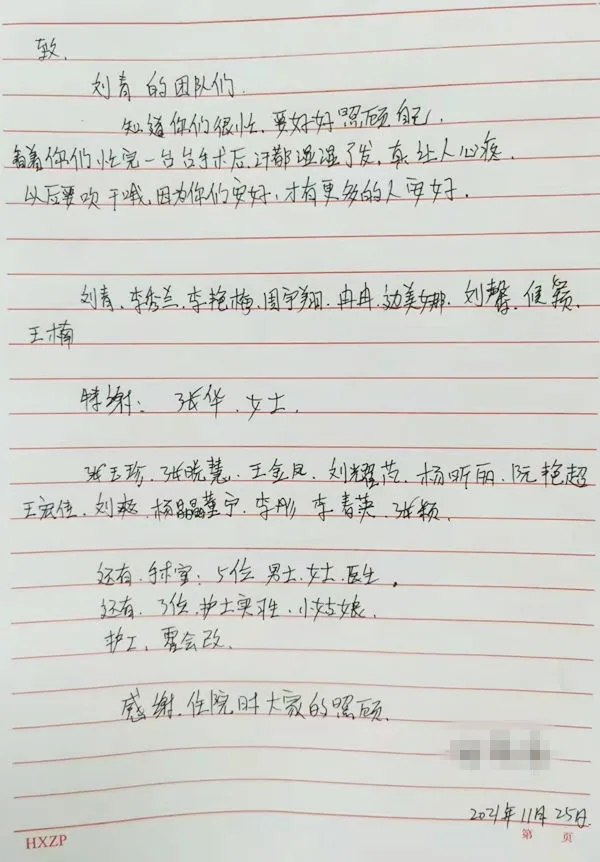 致.
刘青 的团队们.
知道你们很忙.要好好照顾自己.
看着你们忙完一台台手术后,汗都湿湿了发,真让人心疼.
以后要吹干哦,因为你们更好,才有更多的人更好.
刘青.李秀兰.李艳梅.周宇翔.冉冉.边美娜.刘馨.候颖.
王楠
特谢: 张华.女士.
张玉珍.张晓慧.王金凤.刘耀范.杨昕丽.阮艳超
王宏佳.刘爽.杨晶晶 宁.李彤.李春英.张颖.
还有.手术室:5位男士.女士.医生.
还有.3位.护士实习生.小姑娘.
护工.霍会改.
感谢.住院时大家的照顾.
2021年11月25日.
HXZP
第 页